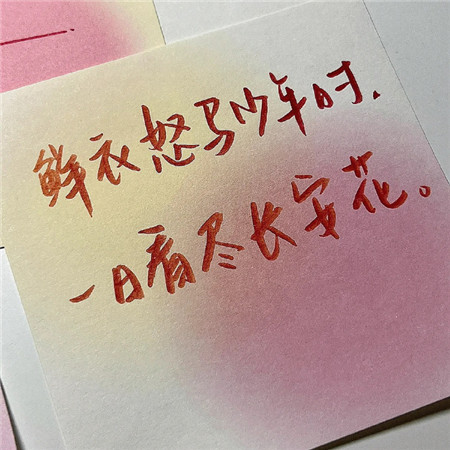 鲜衣怒马少年时,
一日看尽长安花。